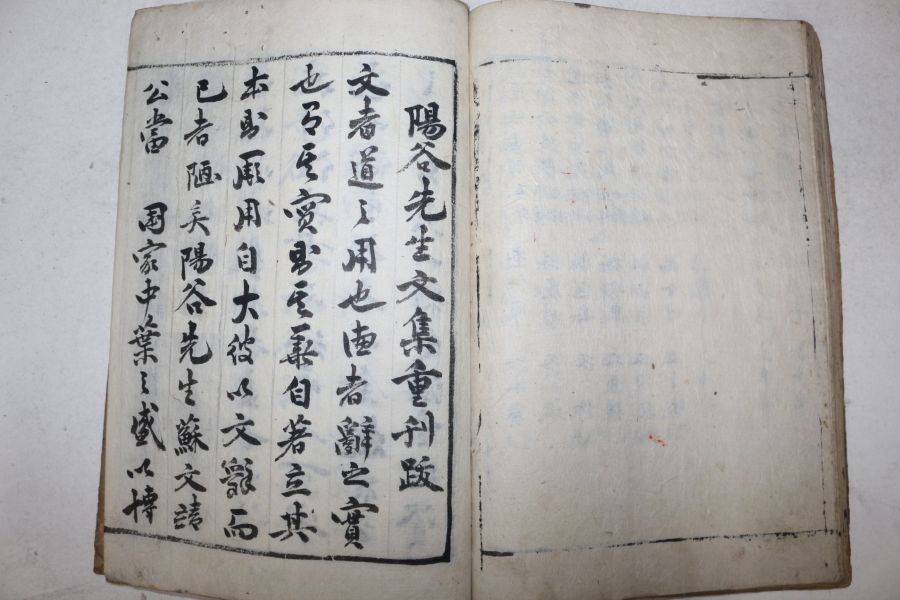 陽谷先生文集重刊跋
文者道之用也德者辭之實
也有其實則其華自著立其
本則厥用自大彼以文辭而
已者陋矣陽谷先生蘇文靖
公當 国家中葉之盛以博